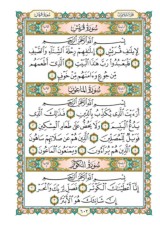 سورة قريش
بسم الله الرحمن الرحيم
لِإِيلَافِ قُرَيْشٍ ۝ إِۦلَافِهِمْ رِحْلَةَ الشِّتَاءِ وَالصَّيْفِ
۝ فَلْيَعْبُدُوا رَبَّ هَٰذَا الْبَيْتِ ۝ الَّذِي أَطْعَمَهُم
مِّن جُوعٍ وَءَامَنَهُم مِّنْ خَوْفٍ ۝
سورة الماعون
بسم الله الرحمن الرحيم
أَرَءَيْتَ الَّذِي يُكَذِّبُ بِالدِّينِ ۝ فَذَٰلِكَ الَّذِي
يَدُعُّ الْيَتِيمَ ۝ وَلَا يَحُضُّ عَلَىٰ طَعَامِ الْمِسْكِينِ ۝
فَوَيْلٌ لِّلْمُصَلِّينَ ۝ الَّذِينَ هُمْ عَن صَلَاتِهِمْ سَاهُونَ
۝ الَّذِينَ هُمْ يُرَاءُونَ ۝ وَيَمْنَعُونَ الْمَاعُونَ ۝
سورة الكوثر
بسم الله الرحمن الرحيم
إِنَّا أَعْطَيْنَاكَ الْكَوْثَرَ ۝ فَصَلِّ لِرَبِّكَ وَانْحَرْ
۝ إِنَّ شَانِئَكَ هُوَ الْأَبْتَرُ ۝
٦٠٢